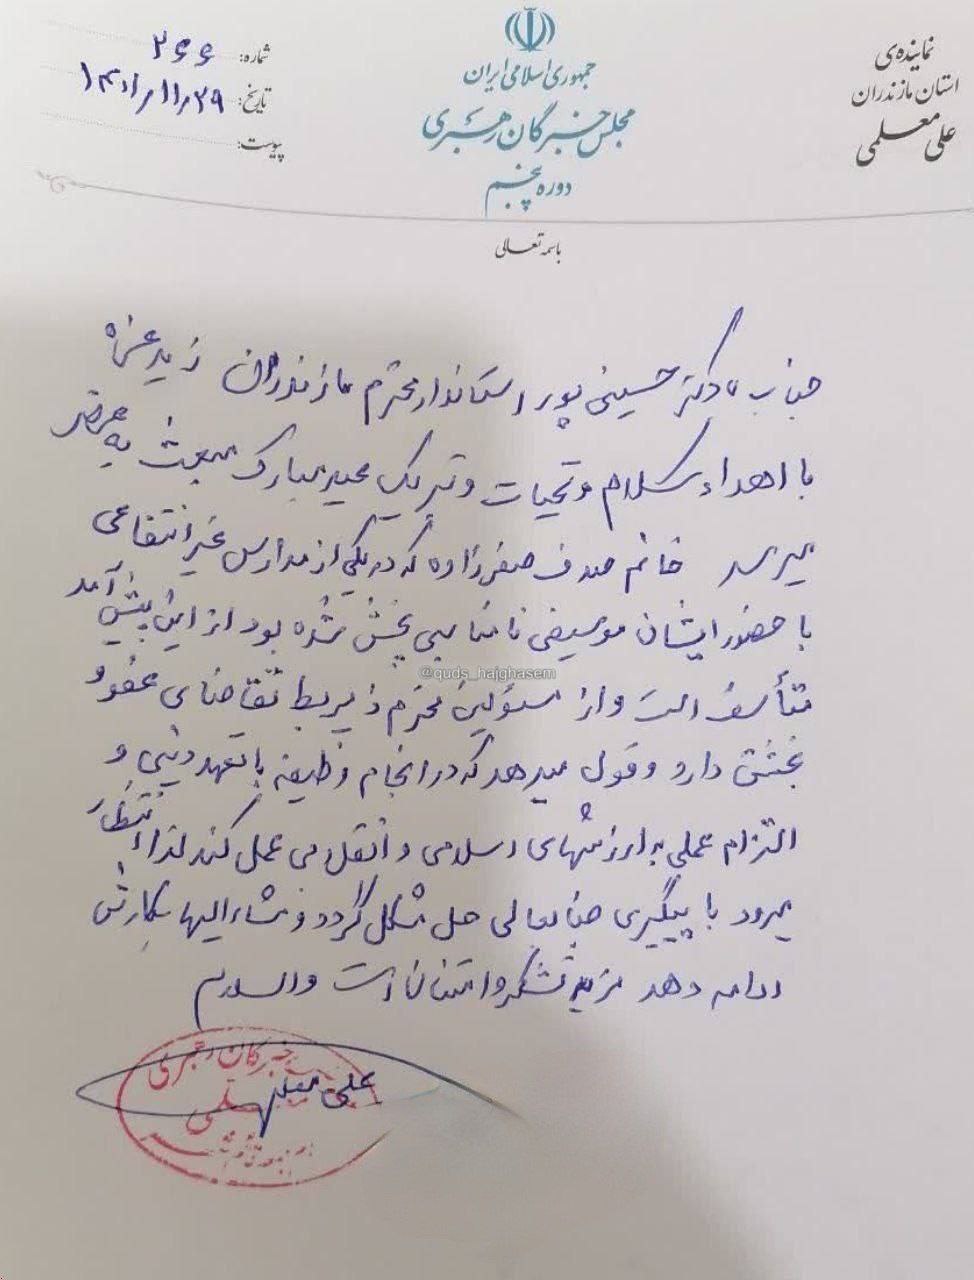 جمهوری اسلامی ایران
مجلس خبرگان رهبری
دوره پنجم
نماینده‌ی
استان مازندران
علی معلمی
شماره: ۲۶۶
تاریخ: ۱۴۰۱/۱۱/۲۹
پیوست:
باسمه تعالی
جناب دکتر حسینی پور استاندار محترم مازندران زید عزه
با اهداء سلام و تحیات و تبریک عید مبارک مبعث به عرض
میرسد خانم صدف صفرزاده که در یکی از مدارس غیر انتفاعی
با حضور ایشان موسیقی نامناسبی پخش شده بود از این پیش آمد
@quds_hajghasem
متأسف است و از مسئولین محترم ذیربط تقاضای عفو و
بخشش دارد و قول میدهد که در انجام وظیفه با تعهد دینی و
التزام عملی به ارزشهای اسلامی و انقلابی عمل کند لذا انتظار
میرود با پیگیری جنابعالی حل مشکل گردد و مشارالیها بکارش
ادامه دهد مزید تشکر و امتنان است والسلام
علی معلمی
خبرگان رهبری